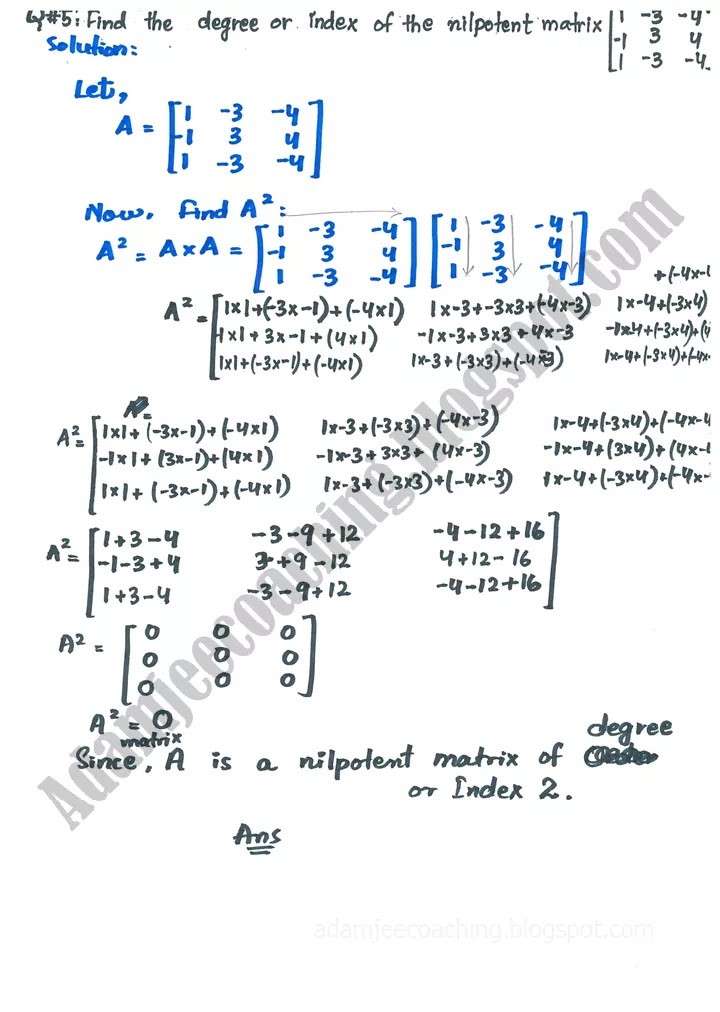 Q#5: Find the degree or index of the nilpotent matrix [1 -3 -4
-1 3 4
1 -3 -4
Solution:
Let,
A = [1 -3 -4
-1 3 4
1 -3 -4]
Now, find A²:
A² = A×A = [1 -3 -4] [1 -3 -4]
-1 3 4 -1 3 4
1 -3 -4 1 -3 -4
+(-4x-
A² = [1x1+(-3x-1)+(-4x1) 1x-3+-3x3+(-4x-3) 1x-4+(-3x4)
-1x1+3x-1+(4x1) -1x-3+3x3+4x-3 -1x-4+(-3x4)+(4
1x1+(-3x-1)+(-4x1) 1x-3+(-3x3)+(-4x-3) 1x-4+(-3x4)+(-4x-
A² = [1x1+(-3x-1)+(-4x1) 1x-3+(-3x3)+(-4x-3) 1x-4+(-3x4)+(-4x-4
-1x1+(3x-1)+(4x1) -1x-3+3x3+(4x-3) -1x-4+(3x4)+(4x-
1x1+(-3x-1)+(-4x1) 1x-3+(-3x3)+(-4x-3) 1x-4+(-3x4)+(-4x-
A² = [1+3-4 -3-9+12 -4-12+16
-1-3+4 3+9-12 4+12-16
1+3-4 -3-9+12 -4-12+16]
A² = [0 0 0
0 0 0
0 0 0]
A² = 0
matrix degree
Since, A is a nilpotent matrix of
or Index 2.
Ans
Adamjeecoaching.blogspot.com
adamjeecoaching.blogspot.com